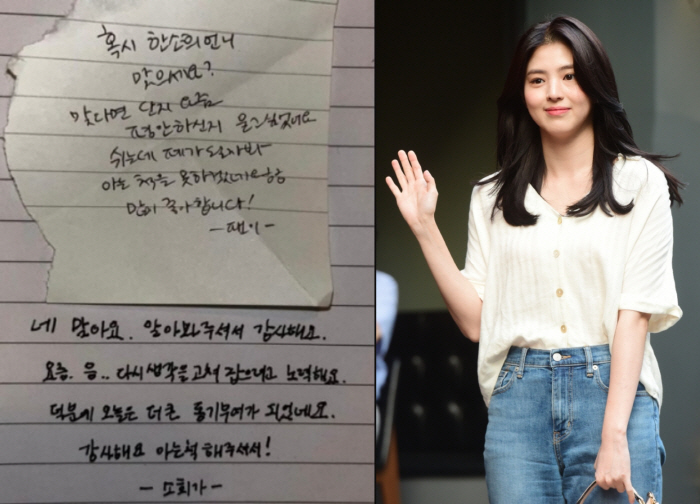 혹시 한소희언니
맞으세요?
맞다면 단지 요즘
평안하신지 묻고싶었어요
쉬는데 제가 될까봐
아는 척을 못하겠네요ㅎㅎ
많이 좋아합니다!
-팬이-
네 맞아요. 알아봐주셔서 감사해요.
요즘. 음.. 다시 생각을 고쳐 잡으려고 노력해요.
덕분에 오늘은 더큰 동기부여가 되었네요.
감사해요 아는척 해주셔서!
-소희가-